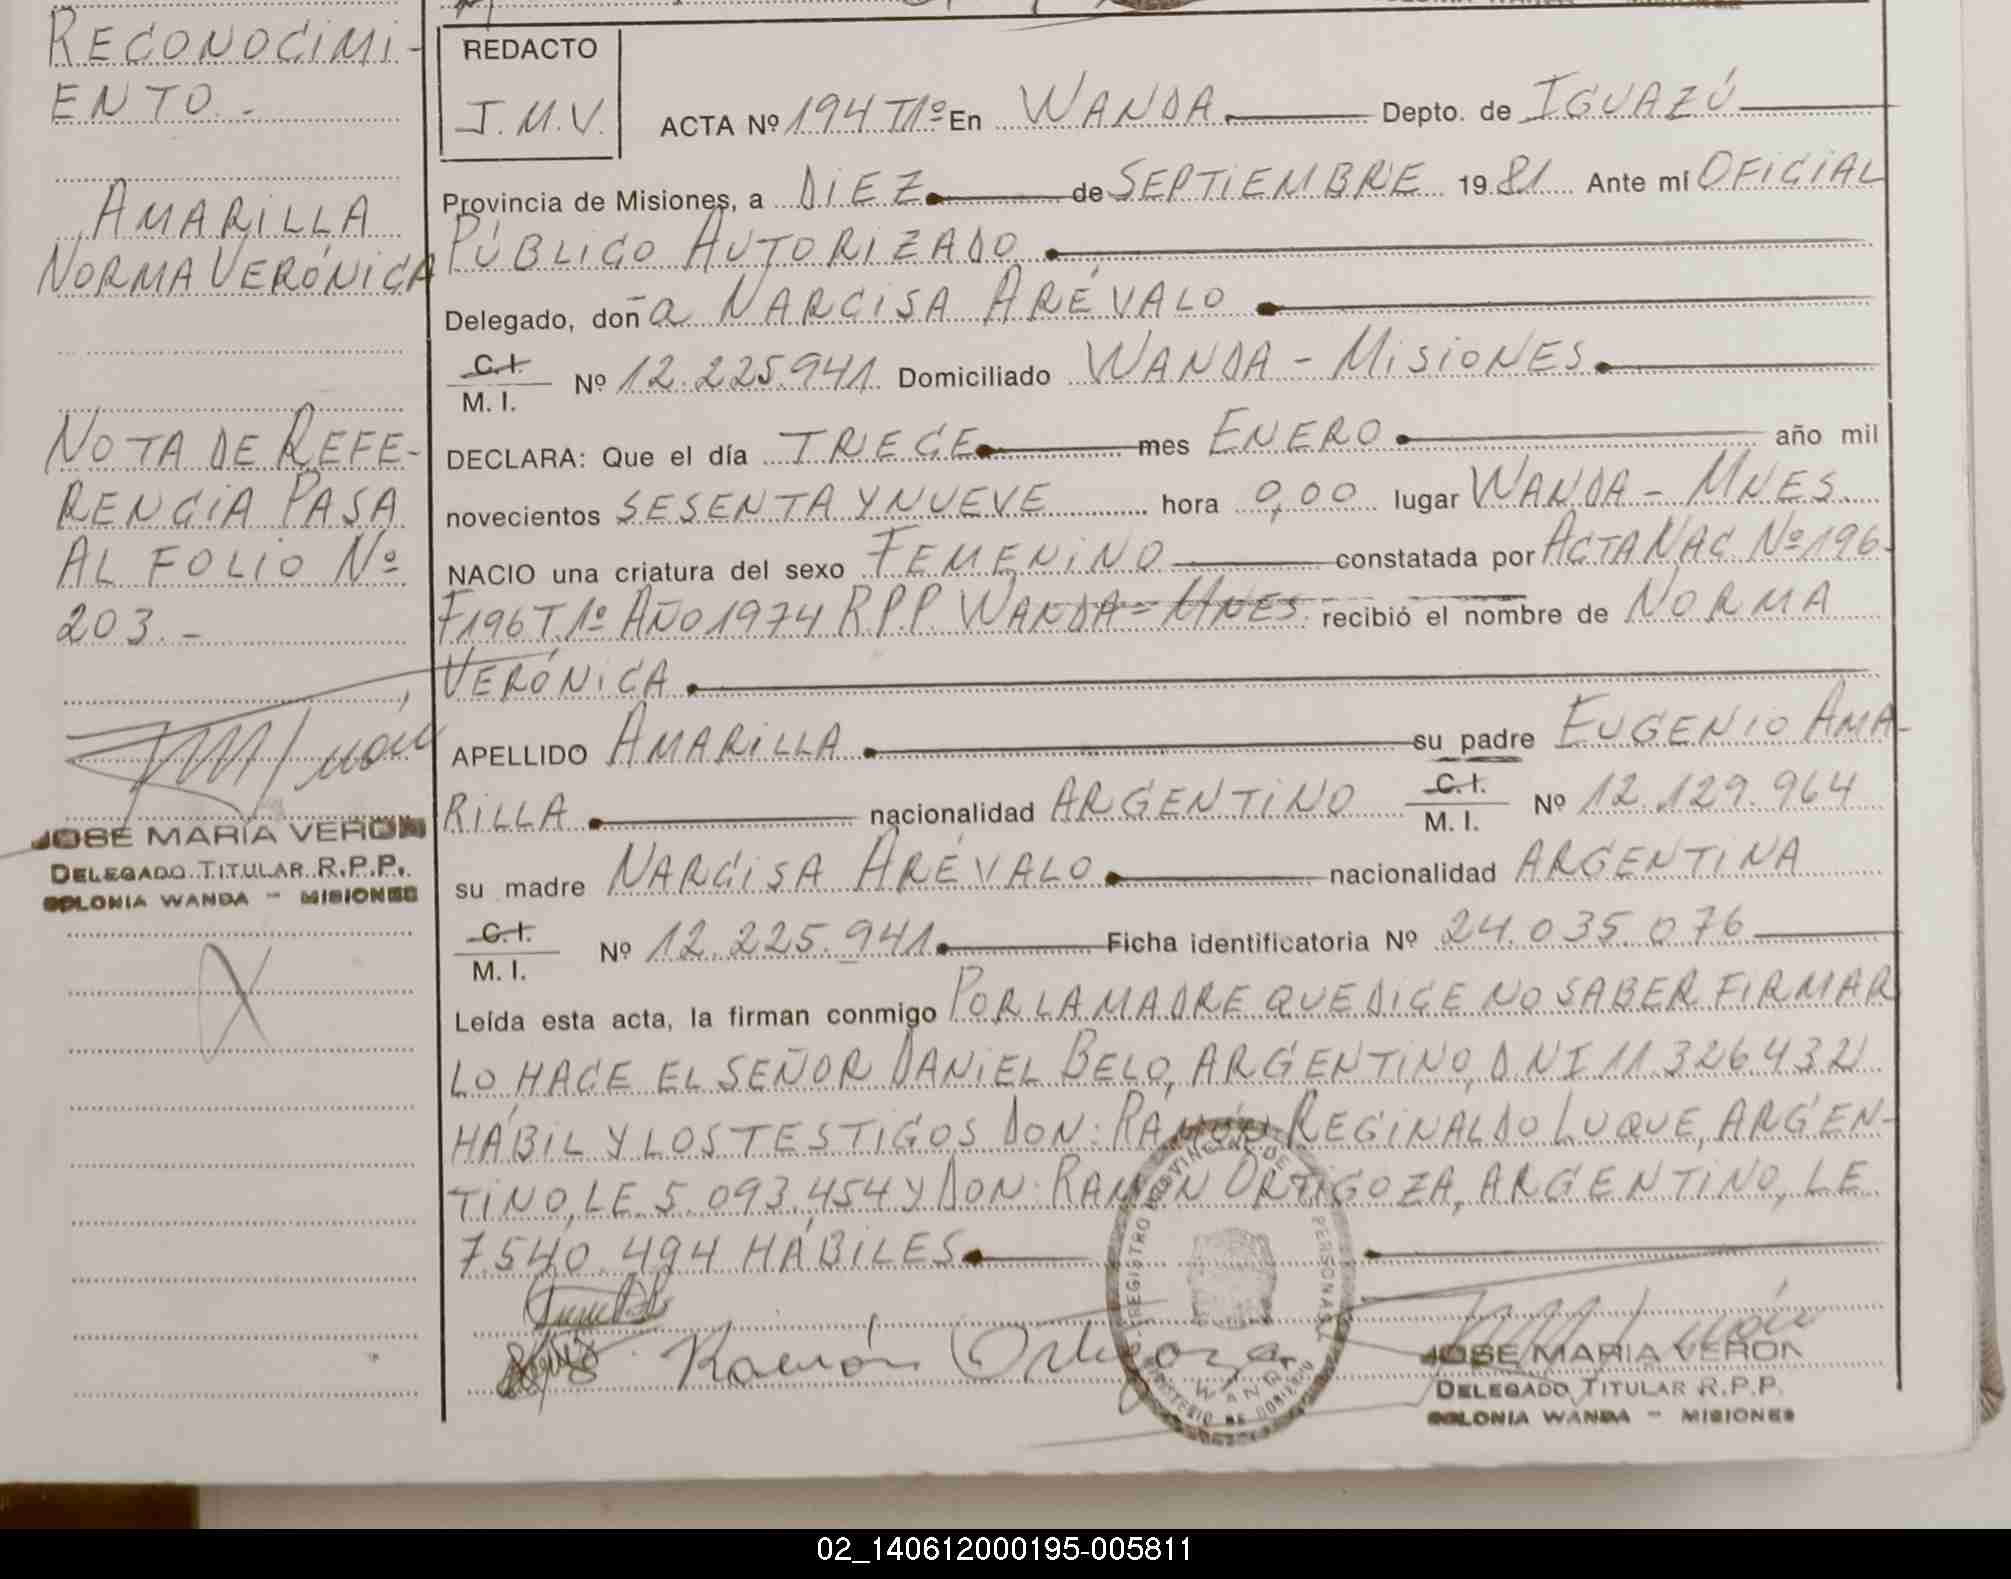 RECONOCIMI-
ENTO.-
AMARILLA
NORMA VERÓNICA
NOTA DE REFE-
RENCIA PASA
AL FOLIO Nº
203.-
JOSE MARIA VERON
DELEGADO TITULAR R.P.P.
COLONIA WANDA - MISIONES
REDACTO
J.M.V.
ACTA Nº 194 T1º En WANDA Depto. de IGUAZÚ
Provincia de Misiones, a DIEZ de SEPTIEMBRE 1981 Ante mí OFICIAL
PÚBLICO AUTORIZADO
Delegado, doña NARCISA ARÉVALO
C.I.
M.I. Nº 12.225.941 Domiciliado WANDA - MISIONES
DECLARA: Que el día TRECE mes ENERO año mil
novecientos SESENTA Y NUEVE hora 0,00 lugar WANDA - MNES.
NACIO una criatura del sexo FEMENINO constatada por ACTA NAC. Nº 196-
F196 T.1º AÑO 1974 R.P.P. WANDA = MNES. recibió el nombre de NORMA
VERÓNICA
APELLIDO AMARILLA su padre EUGENIO AMA-
RILLA nacionalidad ARGENTINO C.I.
M.I. Nº 12.129.964
su madre NARCISA ARÉVALO nacionalidad ARGENTINA
C.I.
M.I. Nº 12.225.941 Ficha identificatoria Nº 24.035.076
Leída esta acta, la firman conmigo POR LA MADRE QUE DICE NO SABER FIRMAR
LO HACE EL SEÑOR DANIEL BELO, ARGENTINO, DNI 11.326.432
HÁBIL Y LOS TESTIGOS DON: RAMÓN REGINALDO LUQUE, ARGEN-
TINO, LE. 5.093.454 Y DON: RAMÓN ORTIGOZA, ARGENTINO, LE
7.540.494 HÁBILES
Ramón Ortigoza
REGISTRO PROVINCIAL DE PERSONAS
WANDA
MINISTERIO DE GOBIERNO
JOSE MARIA VERON
DELEGADO TITULAR R.P.P.
COLONIA WANDA - MISIONES
02_140612000195-005811